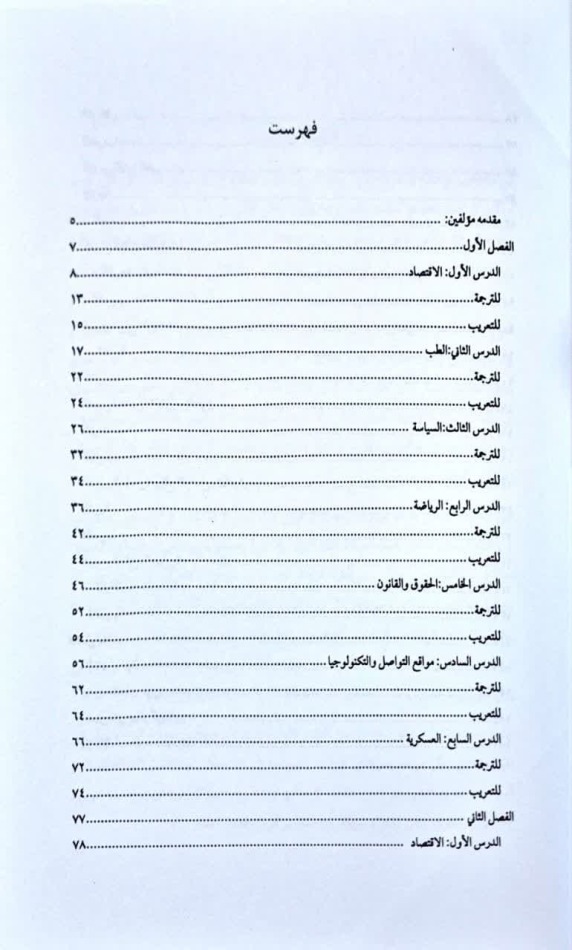 فهرست
مقدمه مؤلفين: ........ ٥
الفصل الأول ........ ٧
الدرس الأول: الاقتصاد ........ ٨
للترجمة ........ ١٣
للتعريب ........ ١٥
الدرس الثاني:الطب ........ ١٧
للترجمة ........ ٢٢
للتعريب ........ ٢٤
الدرس الثالث:السياسة ........ ٢٦
للترجمة ........ ٣٢
للتعريب ........ ٣٤
الدرس الرابع: الرياضة ........ ٣٦
للترجمة ........ ٤٢
للتعريب ........ ٤٤
الدرس الخامس:الحقوق والقانون ........ ٤٦
للترجمة ........ ٥٢
للتعريب ........ ٥٤
الدرس السادس: مواقع التواصل والتكنولوجيا ........ ٥٦
للترجمة ........ ٦٢
للتعريب ........ ٦٤
الدرس السابع: العسكرية ........ ٦٦
للترجمة ........ ٧٢
للتعريب ........ ٧٤
الفصل الثاني ........ ٧٧
الدرس الأول: الاقتصاد ........ ٧٨